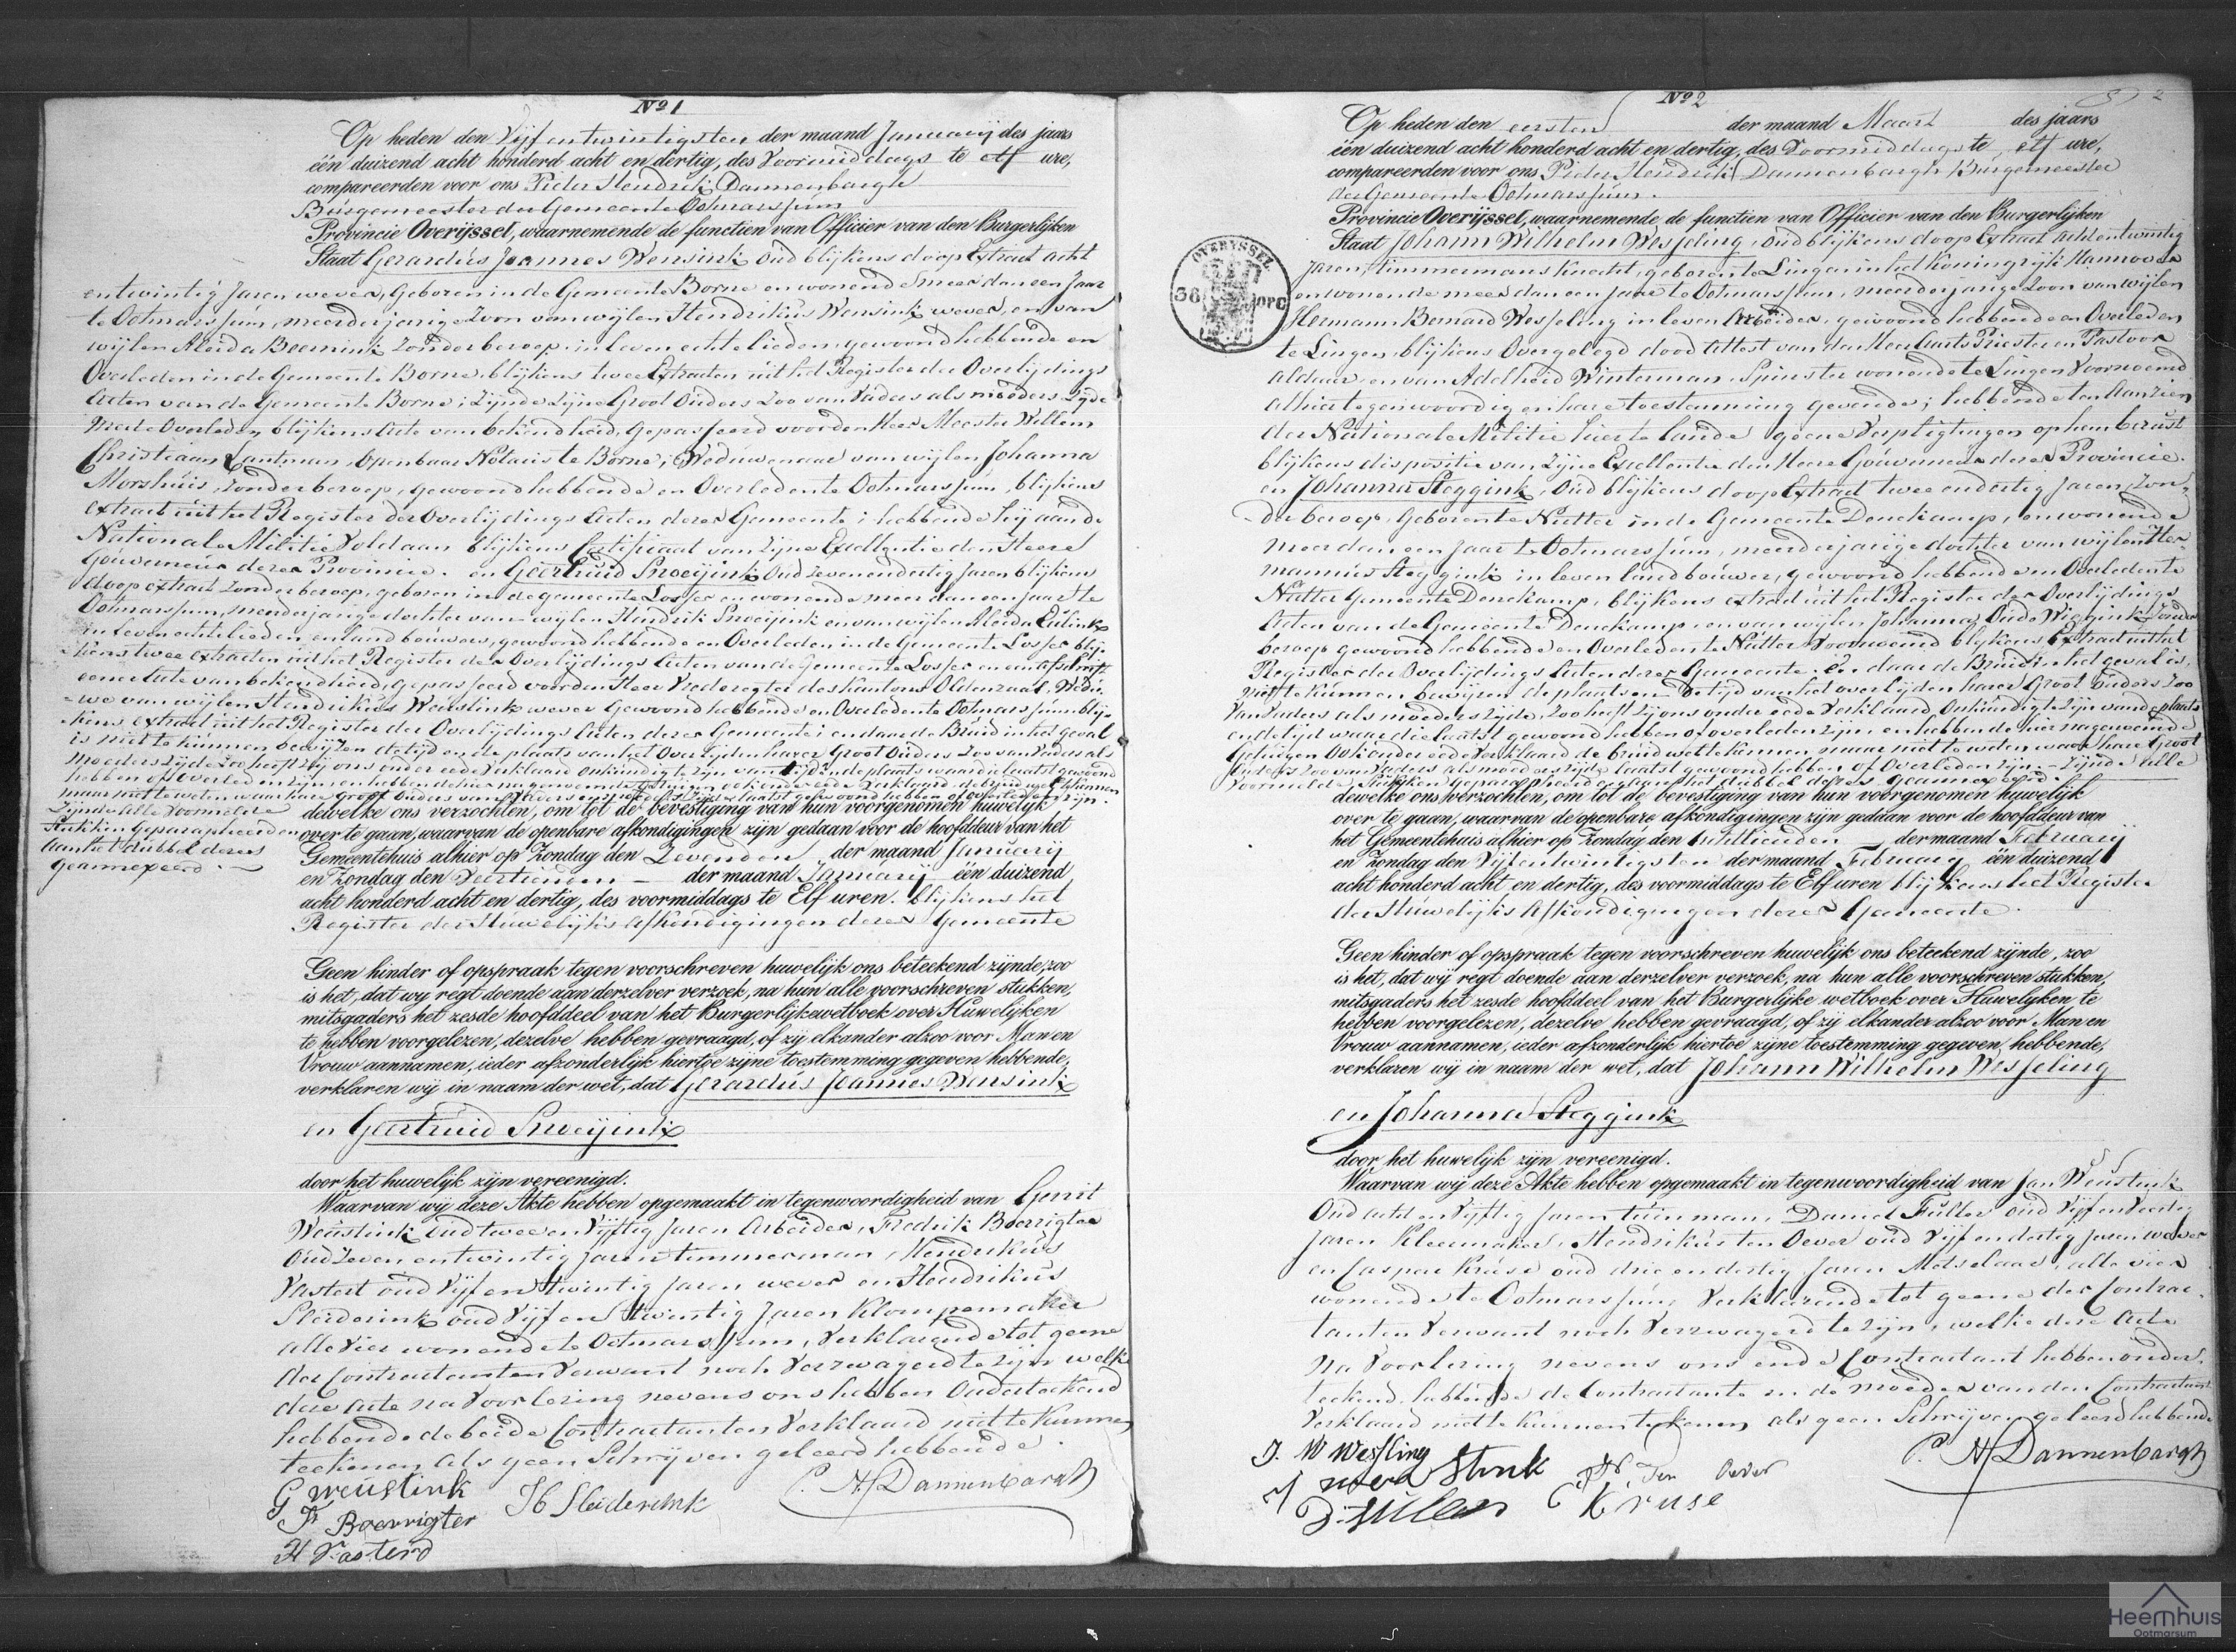 Nº 1
Op heden den Vijf en twintigsten der maand Januarij des jaars
één duizend acht honderd acht en dertig, des Voormiddags te elf ure,
compareerden voor ons Pieter Hendrik Dannenbargh
Burgemeester der Gemeente Ootmarssum
Provincie Overijssel, waarnemende de functien van Officier van den Burgerlijken
Staat Gerardus Joannes Wensink Oud blijkens doop Extract acht
entwintig Jaren wever, Geboren in de Gemeente Borne en wonende meer dan een Jaar
te Ootmarssum, meerderjarige Zoon van wijlen Hendrikus Wensink wever, en van
wijlen Aleida Beernink Zonder beroep in leven echtelieden, gewoond hebbende en
Overleden in de Gemeente Borne blijkens twee Extracten uit het Register der Overlijdings
Acten van de Gemeente Borne; Zijnde Zijne Groot Ouders Zoo van Vaders als moeders Zijde
mede Overleden blijkens Acte van bekendheid, Gepasseerd voor den Heer Meester Willem
Christiaan Lantman, Openbaar Notaris te Borne; Weduwenaar van wijlen Johanna
Morshuis, Zonder beroep, gewoond hebbende en Overleden te Ootmarssum, blijkens
extract uit het Register der Overlijdings Acten dezer Gemeente; hebbende hij aan de
Nationale Militie Voldaan blijkens Certificaat van Zijne Excellentie den Heere
Gouverneur dezer Provincie. en Geertruid Snoeijink Oud Zevenendertig Jaren blijkens
doop extract Zonder beroep, geboren in de gemeente Losser en wonende meer dan een Jaar te
Ootmarssum, meerderjarige dochter van wijlen Hendrik Snoeijink en van wijlen Aleida
in leven echtelieden en landbouwers, gewoond hebbende en Overleden in de Gemeente Losser blij-
kens twee extracten uit het Register der Overlijdings Acten van de Gemeente Losser en een afschrift
eener Acte van bekendheid, Gepasseerd voor den Heer Vrederegter des Kantons Oldenzaal, Wedu-
we van wijlen Hendrikus Weustink wever Gewoond hebbende en Overleden te Ootmarssum blij-
kens extract uit het Register der Overlijdings Acten dezer Gemeente; en daar de Bruid in het geval
is niet te kunnen bewijzen de tijd en de plaats van het Overlijden harer Groot Ouders Zoo van Vaders als
moeders Zijde Zoo heeft Zij ons onder eede Verklaard Onkundig te Zijn van tijd en de plaats waar die laatst gewoond
hebben of Overleden zijn, en hebben de hier nagenoemde Getuigen ook onder eede Verklaard, de bruid wel te kunnen
maar niet te weten waar hare Groot Ouders van Vaders en moeders Zijde laatst gewoond hebben of overleden zijn.
Zijnde alle Voormelde
Stukken Geparapheerd en
aan het dubbel dezes
geannexeerd. —
dewelke ons verzochten, om tot de bevestiging van hun voorgenomen huwelijk
over te gaan, waarvan de openbare afkondigingen zijn gedaan voor de hoofddeur van het
Gemeentehuis alhier op Zondag den Zevenden der maand Januarij
en Zondag den Veertienden — der maand January één duizend
acht honderd acht en dertig, des voormiddags te Elf uren. blijkens het
Register der Huwelijks afkondigingen dezer Gemeente
Geen hinder of opspraak tegen voorschreven huwelijk ons beteekend zijnde, zoo
is het, dat wij regt doende aan derzelver verzoek, na hun alle voorschreven stukken,
mitsgaders het zesde hoofddeel van het Burgerlijke wetboek over Huwelijken
te hebben voorgelezen, dezelve hebben gevraagd, of zij elkander alzoo voor Man en
Vrouw aannamen, ieder afzonderlijk hiertoe zijne toestemming gegeven hebbende,
verklaren wij in naam der wet, dat Gerardus Joannes Wensink
en Geertruid Snoeijink
door het huwelijk zijn vereenigd.
Waarvan wij deze Akte hebben opgemaakt in tegenwoordigheid van Gerrit
Weustink Oud twee en Vijftig Jaren Arbeider, Fredrik Boerrigter
Oud Zeven entwintig Jaren timmerman, Hendrikus
Vastert oud Vijf en twintig Jaren wever en Hendrikus
Sleiderink oud Vijf en twintig Jaren Klompemaker
alle Vier wonende te Ootmarssum, Verklarende tot geene
der Contractanten Verwant noch Verzwagerd te Zijn welke
deze acte na Voorlezing nevens ons hebben Onderteekend
hebbende de beide Contractanten Verklaard niet te Kunnen
teekenen als geen Schrijven geleerd hebbende.
G weustink
F Boerrigter
H Vasterd
H Sleiderink
P. H. Dannenbargh
Nº 2
Op heden den eersten der maand Maart des jaars
één duizend acht honderd acht en dertig, des Voormiddags te elf ure,
compareerden voor ons Pieter Hendrik Dannenbargh Burgemeester
der Gemeente Ootmarssum.
Provincie Overijssel, waarnemende de functien van Officier van den Burgerlijken
Staat Johann Wilhelm Wesseling, Oud blijkens doop Extract acht entwintig
Jaren, timmermans Knecht, geboren te Lingen in het Koningrijk Hannover
en wonende meer dan een Jaar te Ootmarssum, meerderjarige Zoon van wijlen
Hermann Bernard Wesseling in leven Arbeider, gewoond hebbende en Overleden
te Lingen, blijkens Overgelegd dood Attest van den Heer Aarts Priester en Pastoor
aldaar, en van Adelheid Winterman, Spinster wonende te Lingen Voornoemd
alhier tegenwoordig en hare toestemming gevende; hebbende ten Aanzien
der Nationale Militie hier te lande geene Verpligtingen op hem berust
blijkens dispositie van Zijne Excellentie den Heere Gouverneur dezer Provincie.
en Johanna Steggink, Oud blijkens doop Extract twee en dertig Jaren, Zon-
der beroep, Geboren te Nutter in de Gemeente Denekamp, en wonende
meer dan een Jaar te Ootmarssum, meerderjarige dochter van wijlen Her-
mannus Steggink in leven landbouwer, gewoond hebbende en Overleden te
Nutter Gemeente Denekamp, blijkens extract uit het Register der Overlijdings
Acten van de Gemeente Denekamp en van wijlen Johanna Oude Wiggink Zonder
beroep gewoond hebbende en Overleden te Nutter Voornoemd blijkens Extract uit het
Register der Overlijdings Acten dezer Gemeente. En daar de Bruid in het geval is,
niet te kunnen bewijzen de plaats en de tijd van het overlijden harer Groot Ouders Zoo
van Vaders als moeders Zijde, Zoo heeft Zij ons onder eede Verklaard, Onkundig te Zijn van de plaats
en de tijd waar die laatst gewoond hebben of overleden zijn, en hebben de hier nagenoemde
Getuigen Ook onder eede Verklaard de bruid wel te kennen, maar niet te weten waar hare Groot
Ouders Zoo van Vaders als moeders Zijde laatst gewoond hebben of Overleden zijn. — Zijnde alle
Voormelde Stukken Geparapheerd en aan het dubbel dezes geannexeerd.
dewelke ons verzochten, om tot de bevestiging van hun voorgenomen huwelijk
over te gaan, waarvan de openbare afkondigingen zijn gedaan voor de hoofddeur van
het Gemeentehuis alhier op Zondag den Achttienden der maand Februarij
en Zondag den Vijfentwintigsten der maand February één duizend
acht honderd acht en dertig, des voormiddags te Elf uren blijkens het Register
der Huwelijks Afkondigingen dezer Gemeente.
Geen hinder of opspraak tegen voorschreven huwelijk ons beteekend zijnde, zoo
is het, dat wij regt doende aan derzelver verzoek, na hun alle voorschreven stukken,
mitsgaders het zesde hoofddeel van het Burgerlijke wetboek over Huwelyken te
hebben voorgelezen, dezelve hebben gevraagd, of zij elkander alzoo voor Man en
Vrouw aannamen, ieder afzonderlijk hiertoe zijne toestemming gegeven, hebbende,
verklaren wij in naam der wet, dat Johann Wilhelm Wesseling
en Johanna Steggink
door het huwelijk zijn vereenigd.
Waarvan wij deze Akte hebben opgemaakt in tegenwoordigheid van Jan Weustink
Oud acht en Vijftig Jaren tuinman, Daniel Füller oud Vijf en Veertig
Jaren Kleermaker, Hendrikus ten Oever oud Vijf en dertig Jaren wever
en Caspar Kruse oud drie en dertig Jaren Metselaar, alle vier
wonende te Ootmarssum, Verklarende tot geene der Contrac-
tanten Verwant noch Verzwagerd te zijn, welke deze Acte
na Voorlezing nevens ons en de Contractant hebben onder-
teekend, hebbende de Contractante en de moeder van den Contractant
Verklaard niet te kunnen teekenen als geen Schrijven geleerd hebbende
J. W Wesseling
H. Ten Oever
C Kruse
P. H. Dannenbargh
OVERYSSEL
36
Heemhuis
Ootmarsum